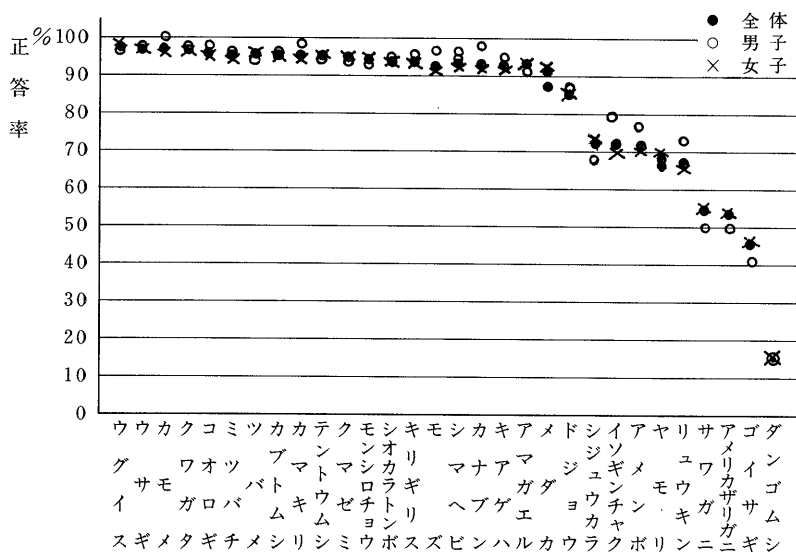 正答率
%
100
90
80
70
60
50
40
30
20
10
0
● 全体
○ 男子
× 女子
ウグイス
ウサギ
カモメ
クワガタ
コオロギ
ミツバチ
ツバメ
カブトムシ
カマキリ
テントウムシ
クマゼミ
モンシロチョウ
シオカラトンボ
キリギリス
モズ
シマヘビ
カナブン
キアゲハ
アマガエル
メダカ
ドジョウ
シジュウカラ
イソギンチャク
アメンボ
ヤモリ
リュウキン
サワガニ
アメリカザリガニ
ゴイサギ
ダンゴムシ